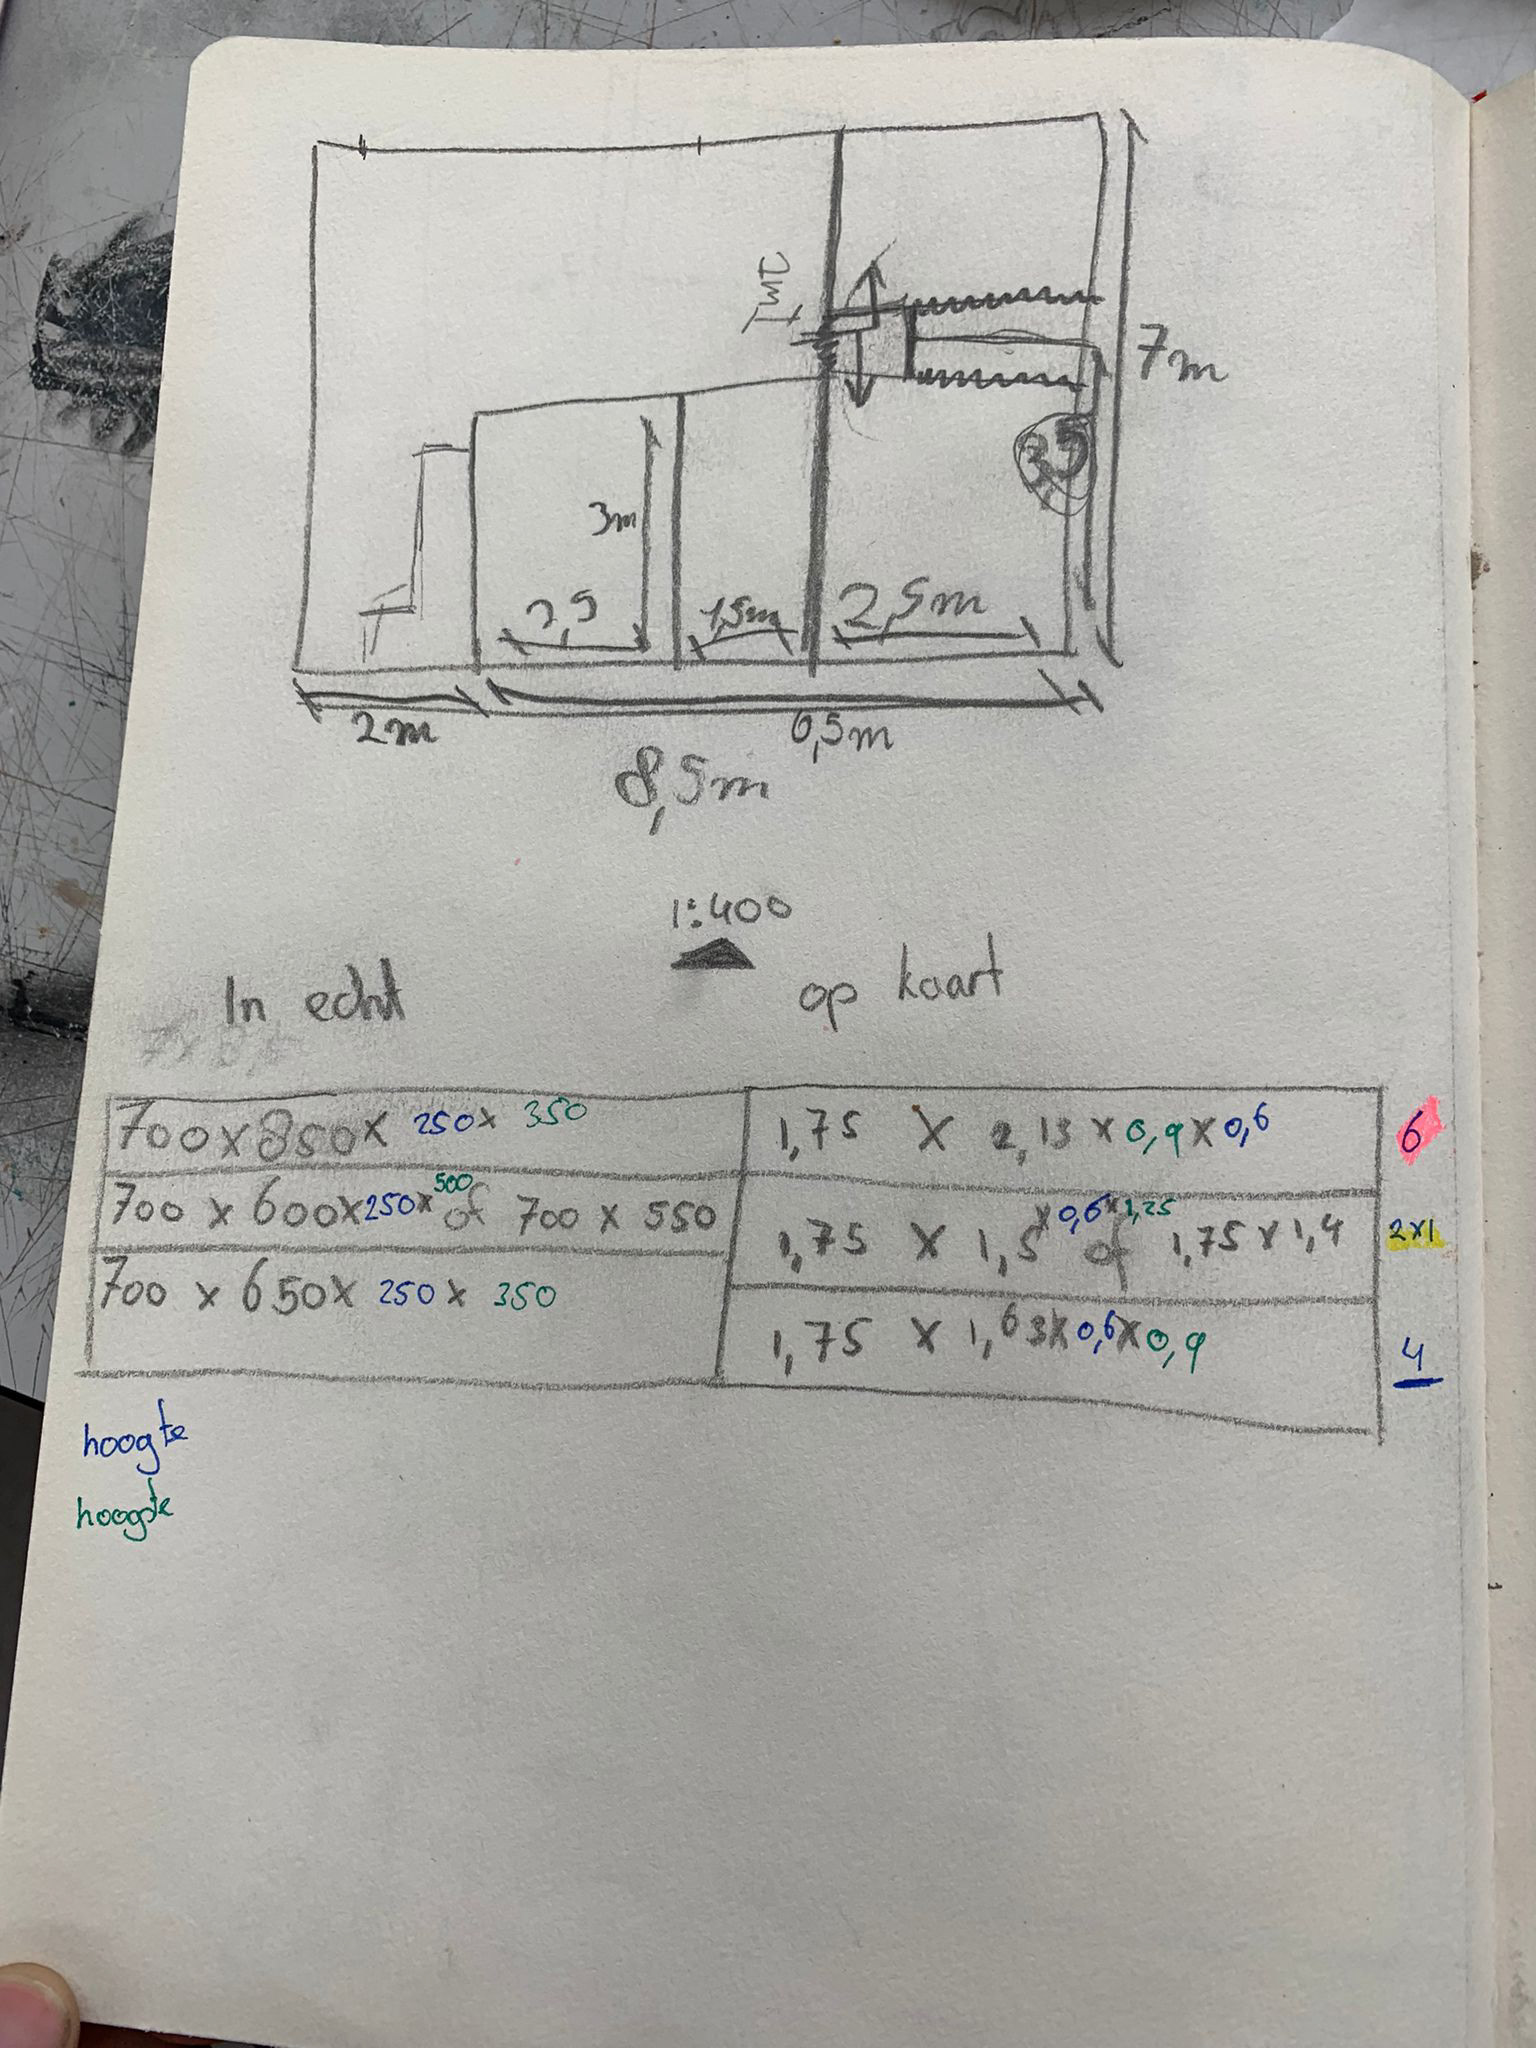 7m
3,5
3m
2,5
1,5m
2,5m
2m
6,5m
8,5m
1:400
In echt
op kaart
700 x 850 x 250 x 350
1,75 x 2,13 x 0,9 x 0,6
6
700 x 600 x 250 x 500 of 700 x 550
1,75 x 1,5 x 0,6 x 1,25 of 1,75 x 1,4
2x1
700 x 650 x 250 x 350
1,75 x 1,63 x 0,6 x 0,9
4
hoogte
hoogste